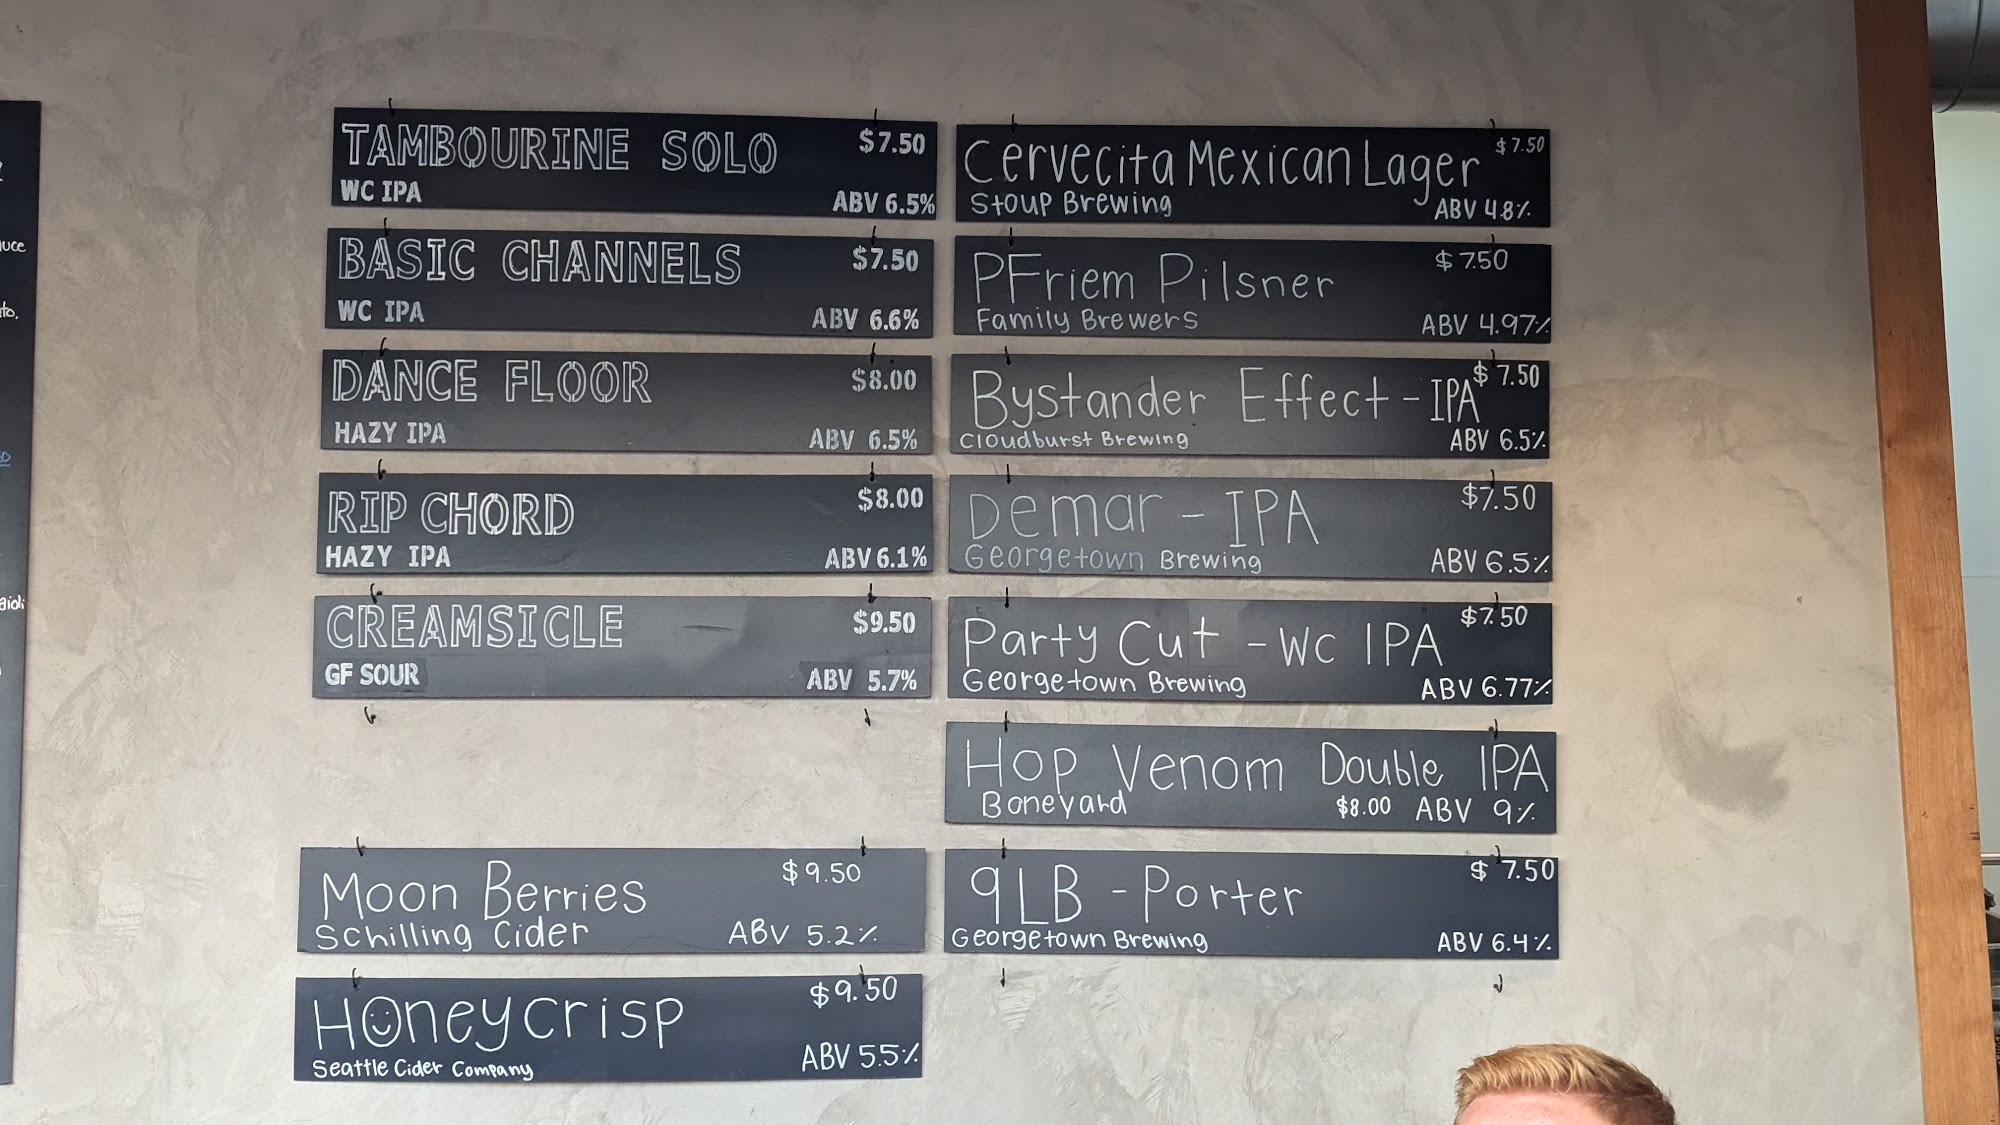 uce
to,
aioli
TAMBOURINE SOLO $7.50
WC IPA ABV 6.5%
BASIC CHANNELS $7.50
WC IPA ABV 6.6%
DANCE FLOOR $8.00
HAZY IPA ABV 6.5%
RIP CHORD $8.00
HAZY IPA ABV 6.1%
CREAMSICLE $9.50
GF SOUR ABV 5.7%
Moon Berries $9.50
Schilling Cider ABV 5.2%
Honeycrisp $9.50
Seattle Cider Company ABV 5.5%
Cervecita Mexican Lager $7.50
Stoup Brewing ABV 4.8%
PFriem Pilsner $7.50
Family Brewers ABV 4.97%
Bystander Effect - IPA $7.50
Cloudburst Brewing ABV 6.5%
Demar - IPA $7.50
Georgetown Brewing ABV 6.5%
Party Cut - WC IPA $7.50
Georgetown Brewing ABV 6.77%
Hop Venom Double IPA
Boneyard $8.00 ABV 9%
9LB - Porter $7.50
Georgetown Brewing ABV 6.4%